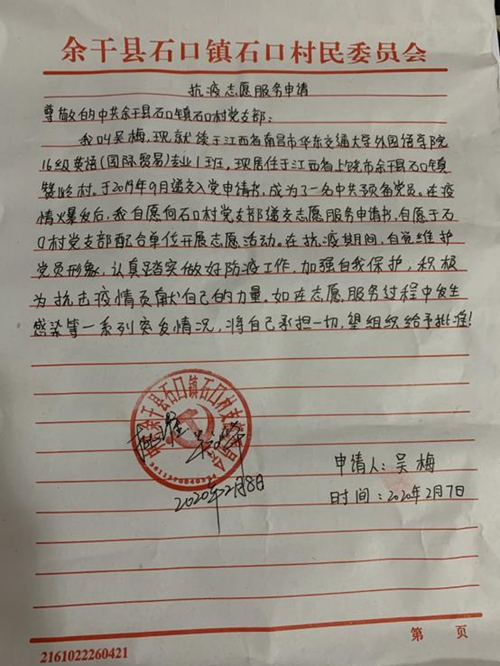 余干县石口镇石口村民委员会
抗疫志愿服务申请
尊敬的中共余干县石口镇石口村党支部：
我叫吴梅，现就读于江西省南昌市华东交通大学外国语学院
16级英语（国际贸易）专业1班，现居住于江西省上饶市余干县石口镇
村。于2019年9月递交入党申请书，成为了一名中共预备党员。在疫
情火暴发后，我自愿向石口村党支部递交志愿服务申请书，自愿于石
口村党支部配合单位开展志愿活动。在抗疫期间，自觉维护
党员形象，认真踏实做好防疫工作，加强自我保护，积极
为抗击疫情贡献自己的力量。如在志愿服务过程中发生
感染等一系列突发情况，将自己承担一切，望组织给予批准！
余干县石口镇石口村支部
批准
2020年2月8日
申请人：吴梅
时间：2020年2月7日
第 页
2161022260421